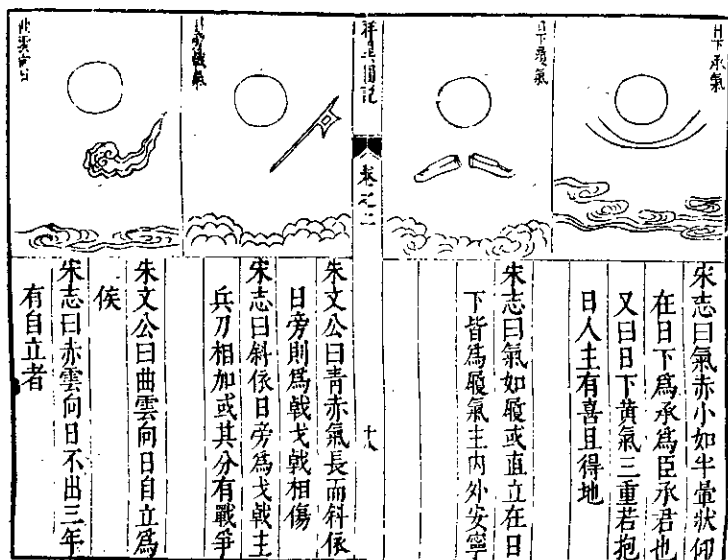 日下承氣
宋志曰氣赤小如半暈狀仰
在日下為承為臣承君也
又曰日下黄氣三重若抱
日人主有喜且得地
日下履氣
宋志曰氣如履或直立在日
下皆為履氣主内外安寧
祥異圖說
卷之二
十八
日旁戟氣
朱文公曰青赤氣長而斜依
日旁則為戟戈戟相傷
宋志曰斜依日旁為戈戟主
兵刀相加或其分有戰爭
曲雲向日
朱文公曰曲雲向日自立為
侯
宋志曰赤雲向日不出三年
有自立者